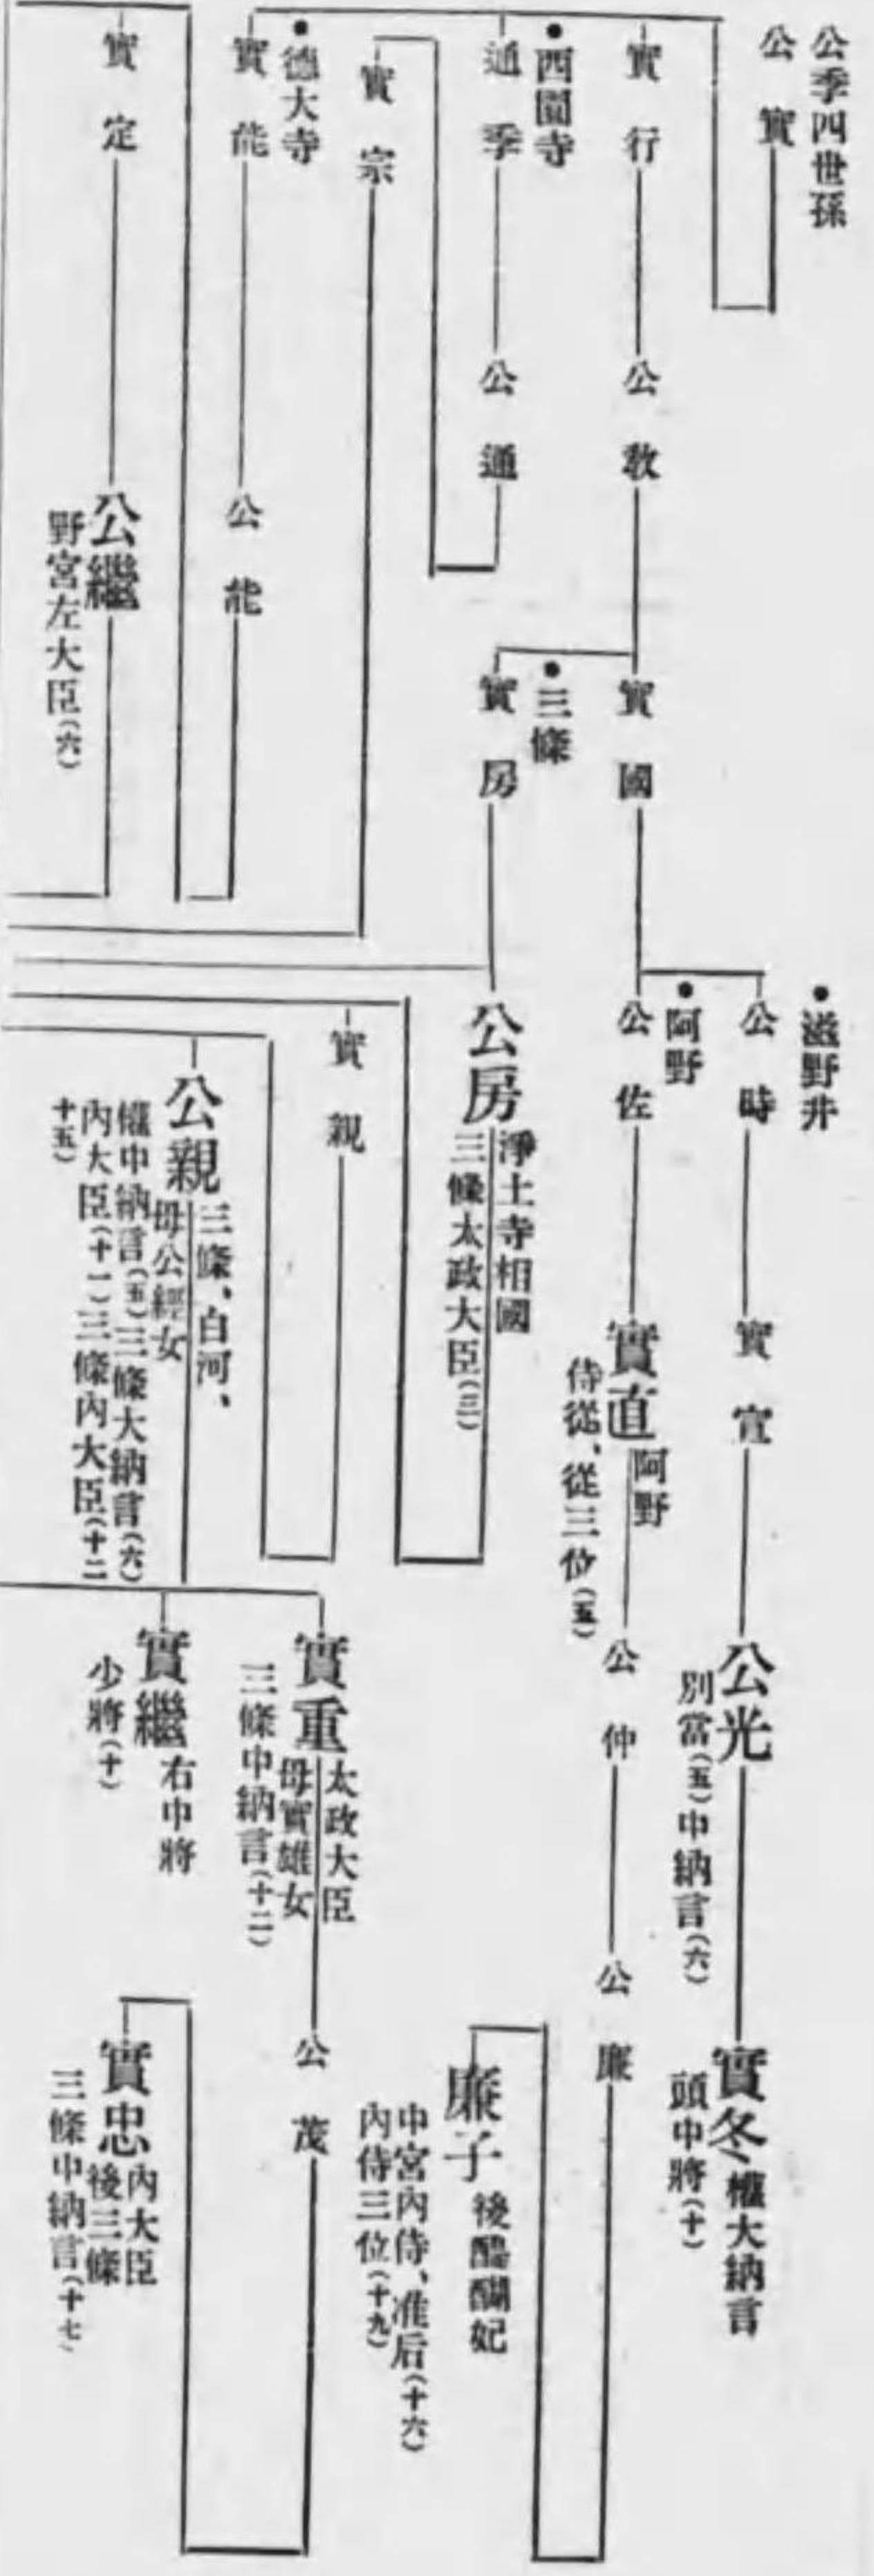 公季四世孫
公實
實行
公教
實國
●滋野井
公時
實宣
公光
別當(五)中納言(六)
實冬
權大納言
頭中將(十)
●阿野
公佐
實直
阿野
侍從、從三位(五)
公仲
公廉
廉子
後醍醐妃
中宮內侍、准后(十六)
內侍三位(十九)
●三條
實房
公房
淨土寺相國
三條太政大臣(三)
實親
公親
三條、白河、
母公經女
權中納言(五)三條大納言(六)
內大臣(十一)三條內大臣(十二
十五)
實重
太政大臣
母實雄女
三條中納言(十二)
公茂
實忠
內大臣
後三條
三條中納言(十七)
實繼
右中將
少將(十)
●西園寺
通季
公通
實宗
●德大寺
實能
公能
實定
公繼
野宮左大臣(六)